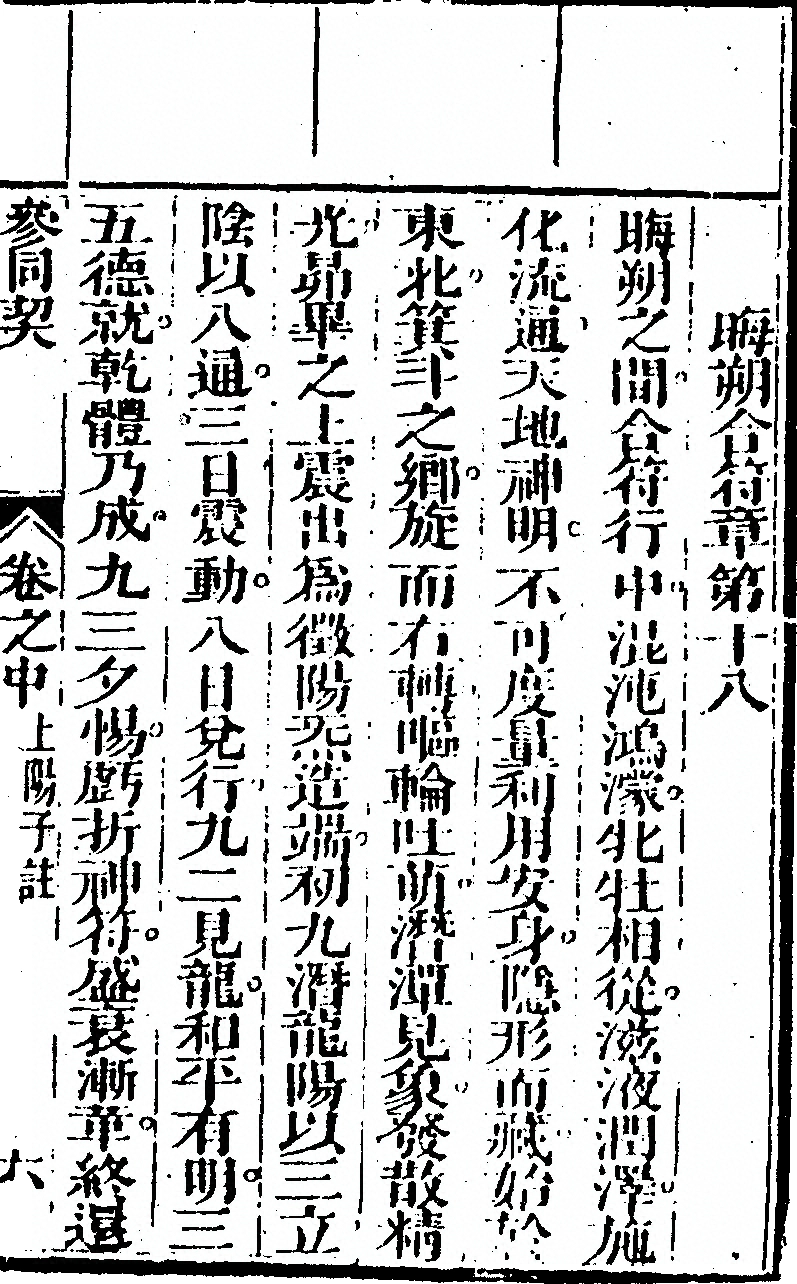 晦朔合符章第十八
晦朔之間合符行中混沌鴻濛牝牡相從滋液潤澤施
化流通天地神明不可度量利用安身隱形而藏始於
東北箕斗之鄉旋而右轉嘔輪吐萌潛潭見象發散精
光昴畢之上震出為徵陽炁造端初九潛龍陽以三立
陰以八通三日震動八日兌行九二見龍和平有明三
五德就乾體乃成九三夕惕虧折神符盛衰漸革終還
參同契 卷之中 上陽子註 六